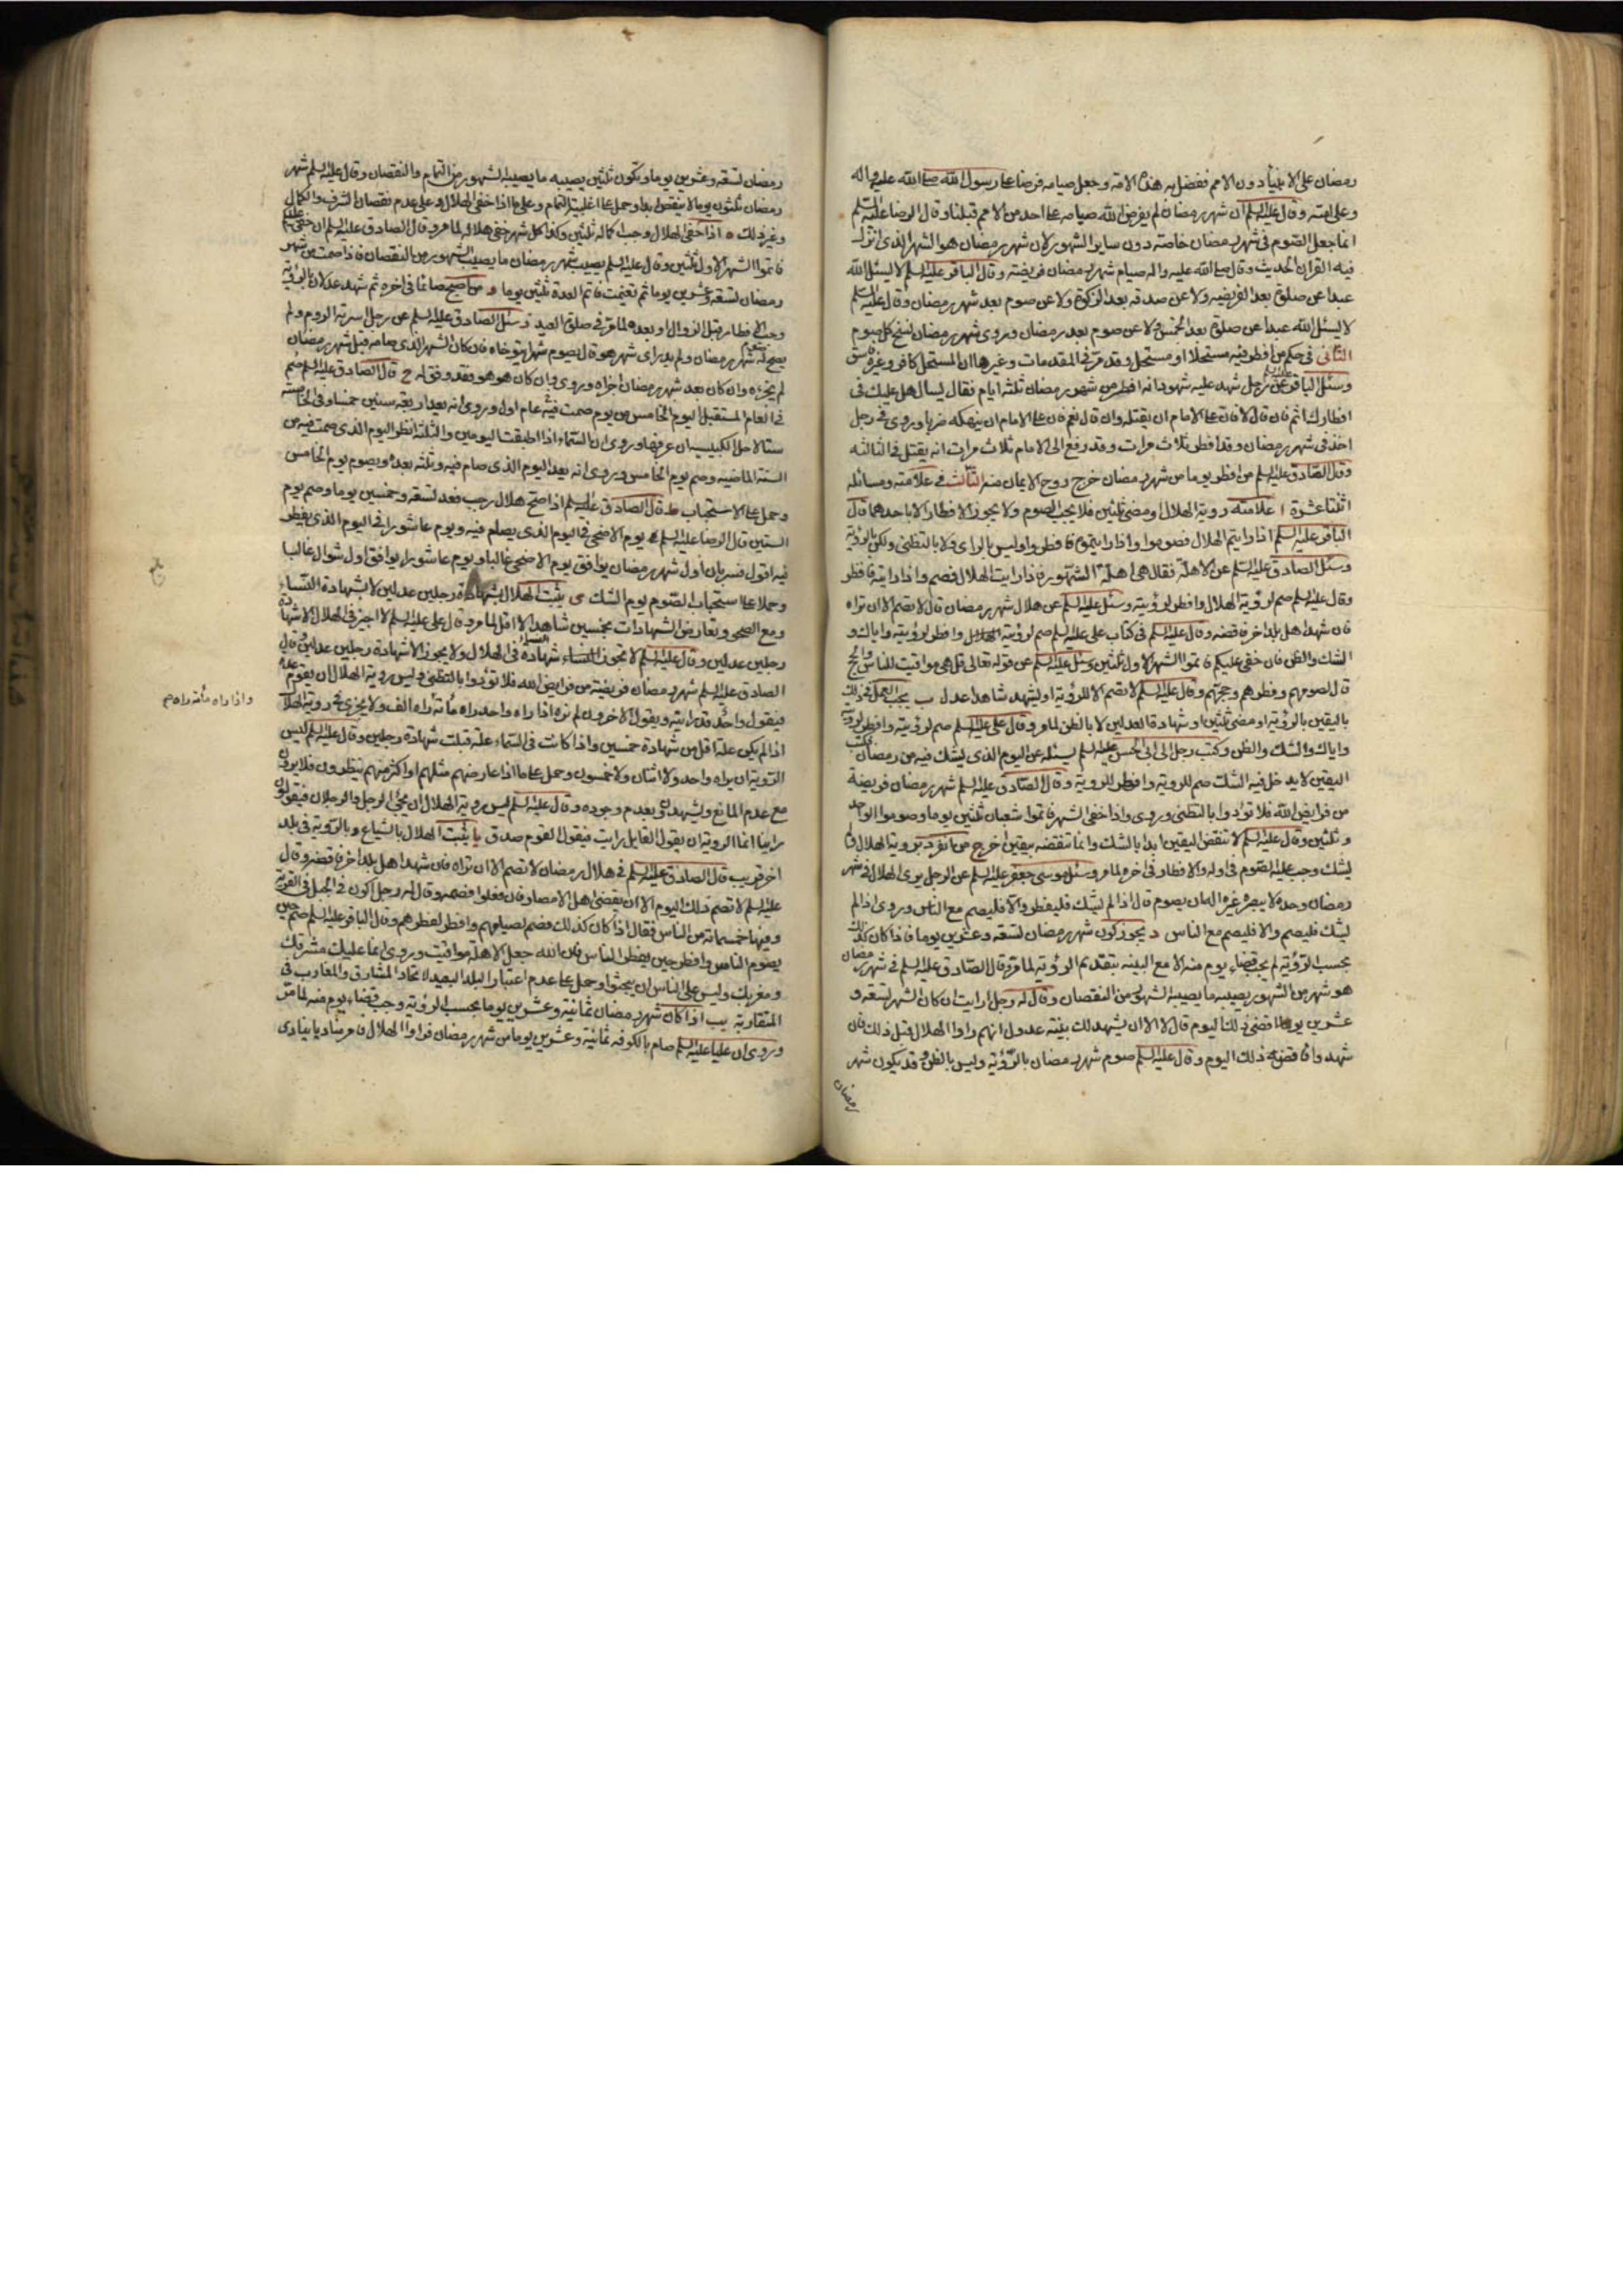 رمضان على الانبياء دون الامم ففضل به هذه الامة وجعل صيامه فرضا على رسول الله صلى الله عليه واله
وعلى امته وقال عليه السلم ان شهر رمضان لم يفرض الله صيامه على احد من الامم قبلنا وقال الرضا عليه السلم
انما جعل الصوم في شهر رمضان خاصة دون ساير الشهور لان شهر رمضان هو الشهر الذي انزل
فيه القران الحديث وقال صلى الله عليه واله صيام شهر رمضان فريضة وقال الباقر عليه السلم لا يسئل الله
عبدا عن صلوة بعد الفريضه ولا عن صدقه بعد الزكوة ولا عن صوم بعد شهر رمضان وقال عليه السلم
لا يسئل الله عبدا عن صلوة بعد الخمس ولا عن صوم بعد رمضان وروى شهر رمضان نسخ كل صوم
الثاني في حكم من افطر فيه مستحلا او مستحل وقد مر في المقدمات وغيرها ان المستحل كافر وغيره فاسق
وسئل الباقر عليه السلم عن رجل شهد عليه شهود انه افطر من شهر رمضان ثلثة ايام فقال يسال هل عليك في
افطارك اثم فان قال لا فان على الامام ان يقتله وان قال نعم فان على الامام ان ينهكه ضربا وروى في رجل
اخذ في شهر رمضان وقد افطر ثلاث مرات وقد رفع الى الامام ثلاث مرات انه يقتل في الثالثه
وقال الصادق عليه السلم من افطر يوما من شهر رمضان خرج روح الايمان منه الثالث في علامته ومسائله
اثنتا عشرة ا علامته روية الهلال او مضي ثلثين فلا يجب الصوم ولا يجوز الافطار الا باحدهما قال
الباقر عليه السلم اذا رايتم الهلال فصوموا واذا رايتموه فافطروا وليس بالراى ولا بالتظني ولكن بالرؤية
وسئل الصادق عليه السلم عن الاهلة فقال هي اهلة الشهور فاذا رايت الهلال فصم واذا رايته فافطر
وقال عليه السلم صم لرؤية الهلال وافطر لرؤيته وسئل عليه السلم عن هلال شهر رمضان قال لا تصم الا ان تراه
فان شهد اهل بلد اخر فاقضه وقال عليه السلم في كتاب علي عليه السلم صم لرؤيته وافطر لرؤيته واياك و
الشك والظن فان خفي عليكم فاتموا الشهر الاول ثلثين وسئل عليه السلم عن قوله تعالى قل هي مواقيت للناس والحج
قال لصومهم وفطرهم وحجهم وقال عليه السلم لا تصم الا للرؤية او يشهد شاهدا عدل ب يجب العمل في ذلك
باليقين بالرؤية او مضي ثلثين او شهادة العدلين لا بالظن لما مر وقال علي عليه السلم صم لرؤيته وافطر لرؤيته
واياك والشك والظن وكتب رجل الى ابي الحسن عليه السلم يسئله عن اليوم الذي يشك فيه من رمضان فكتب
اليقين لا يدخل فيه الشك صم للروية وافطر للروية وقال الصادق عليه السلم شهر رمضان فريضة
من فرايض الله فلا تؤدوا بالتظني وروى واذا خفي الشهر فاتموا شعبان ثلثين يوما وصوموا الواحد
وثلثين وقال عليه السلم لا تنقض اليقين ابدا بالشك وانما تنقضه بيقين اخر ج من انفرد بروية الهلال ولم
يشك وجب عليه الصوم في اوله والافطار في اخره لما مر وسئل موسى جعفر عليه السلم عن الرجل يرى الهلال في شهر
رمضان وحده لا يبصره غيره اله ان يصوم قال اذا لم يشك فليفطر والا فليصم مع الناس وروى اذا لم
يشك فليصم والا فليصم مع الناس د يجوز كون شهر رمضان تسعة وعشرين يوما فاذا كان كذلك
بحسب الرؤية لم يجب قضاء يوم منه الا مع البينه بتقديم الرؤية لما مر وقال الصادق عليه السلم في شهر رمضان
هو شهر من الشهور يصيبه ما يصيب الشهور من النقصان وقال له رجل ارايت ان كان الشهر تسعة و
عشرين يوما اقضي ذلك اليوم قال لا الا ان يشهد لك بينة عدول انهم راوا الهلال قبل ذلك فان
شهدوا فاقض ذلك اليوم وقال عليه السلم صوم شهر رمضان بالرؤية وليس بالظن وقد يكون شهر
رمضان
رمضان تسعة وعشرين يوما ويكون ثلثين يصيبه ما يصيب الشهور من التمام والنقصان وقال عليه السلم شهر
رمضان ثلثون يوما لا ينقص ابدا وحمل على اغلبية التمام وعلى ما اذا خفي الهلال وعلى عدم نقصان الشرف والكمال
وغير ذلك ه اذا خفي الهلال وجب اكماله ثلثين وكذا كل شهر خفي هلاله لما مر وقال الصادق عليه السلم ان خفي عليكم
فاتموا الشهر الاول ثلثين وقال عليه السلم يصيب شهر رمضان ما يصيب الشهور من النقصان فاذا صمت من شهر
رمضان تسعة وعشرين يوما ثم تغيمت فاتم العدة ثلثين يوما و من اصبح صائما في اخره ثم شهد عدلان بالرؤية
وجب الافطار قبل الزوال او بعده لما مر في صلوة العيد ز سئل الصادق عليه السلم عن رجل اسرته الروم ولم
يصح له شهر رمضان ولم يدر اى شهر هو قال يصوم شهرا يتوخاه فان كان الشهر الذي صامه قبل شهر رمضان
لم يجزه وان كان بعد شهر رمضان اجزاه وروى وان كان هو هو فقد وفق له ح قال الصادق عليه السلم صم
في العام المستقبل اليوم الخامس من يوم صمت فيه عام اول وروى انه بعد اربعة سنين خمسا وفي الخامسة
ستا لاجل الكبيسه ان عرفها وروى ان السماء اذا اطبقت اليومين والثلثة انظر اليوم الذي صمت فيه من
السنة الماضيه وصم يوم الخامس وروى انه يعد اليوم الذي صام فيه وثلثه بعده ويصوم يوم الخامس
وحمل على الاستحباب ط قال الصادق عليه السلم اذا صح هلال رجب فعد تسعة وخمسين يوما وصم يوم
الستين قال الرضا عليه السلم يوم الاضحى في اليوم الذي يصام فيه ويوم عاشورا في اليوم الذي يفطر
فيه اقول فسر بان اول شهر رمضان يوافق يوم الاضحى غالبا ويوم عاشورا يوافق اول شوال غالبا
وحملا على استحباب الصوم يوم الشك ى يثبت الهلال بشهادة رجلين عدلين لا بشهادة النساء
ومع الصحو وتعارض الشهادات بخمسين شاهدا لا اقل لما مر وقال علي عليه السلم لا اجيز في الهلال الا شهادة
رجلين عدلين وقال عليه السلم لا تجوز شهادة النساء في الهلال ولا يجوز الا شهادة رجلين عدلين وقال
الصادق عليه السلم شهر رمضان فريضة من فرايض الله فلا تؤدوا بالتظني وليس روية الهلال ان يقوم عدة
فيقول واحد قد رايته ويقول الاخرون لم نره اذا راه واحد راه مأة واذا راه مأة راه الف ولا يجزي في روية الهلال
اذا لم يكن علة اقل من شهادة خمسين واذا كانت في السماء علة قبلت شهادة رجلين وقال عليه السلم ليس
الرؤية ان يراه واحد ولا اثنان ولا خمسون وحمل على ما اذا عارضهم مثلهم او اكثر منهم ينظرون فلا يرون
مع عدم المانع ويشهدون بعدم وجوده وقال عليه السلم ليس روية الهلال ان يجئ الرجل والرجلان فيقولون
راينا انما الروية ان يقول القايل رايت فيقول القوم صدق يا يثبت الهلال بالشياع وبالرؤية في بلد
اخر قريب قال الصادق عليه السلم في هلال رمضان لا تصم الا ان تراه فان شهد اهل بلد اخر فاقضه وقال
عليه السلم لا تصم ذلك اليوم الا ان يقضي اهل الامصار فان فعلوا فصمه وقال له رجل اكون في الجبل في القرية
وفيها خمسمائة من الناس فقال اذا كان كذلك فصم لصيامهم وافطر لفطرهم وقال الباقر عليه السلم صم حين
يصوم الناس وافطر حين يفطر الناس فان الله جعل الاهلة مواقيت وروى انما عليك مشرقك
ومغربك وليس على الناس ان يبحثوا وحمل على عدم اعتبار البلد البعيد لاتحاد المشارق والمغارب في
المتقاربة يب اذا كان شهر رمضان ثمانية وعشرين يوما بحسب الرؤية وجب قضاء يوم منه لما مر
وروى ان عليا عليه السلم صام بالكوفه ثمانية وعشرين يوما من شهر رمضان فراوا الهلال فامر مناديا ينادى
واذا راه مأة راه